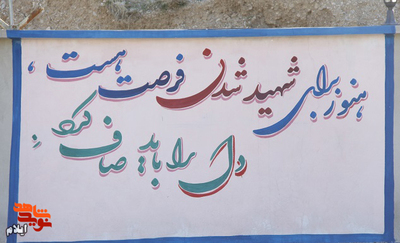 هنوز برای شهید شدن فرصت هست،
دل را باید صاف کرد.
نوید شاهد
ایلام